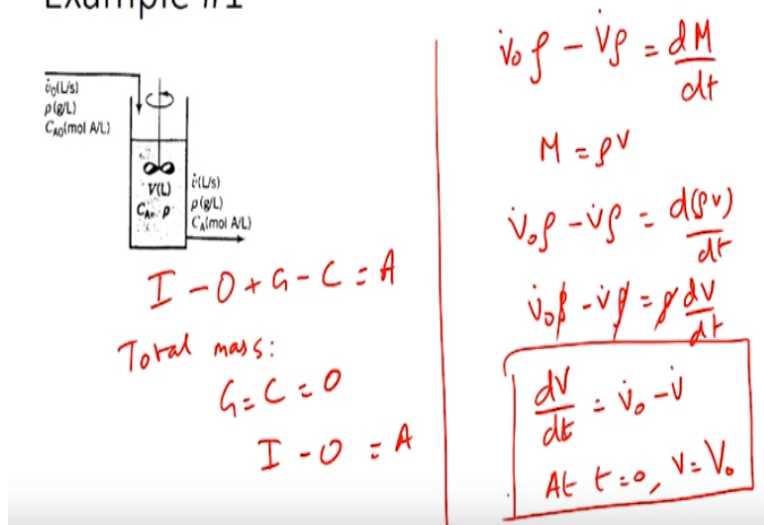 Example #1
v̇₀(L/s)
ρ(g/L)
C_A0(mol A/L)
V(L)
C_A, ρ
v̇(L/s)
ρ(g/L)
C_A(mol A/L)
I - O + G - C = A
Total mass:
G = C = 0
I - O = A
v̇₀ρ - v̇ρ = dM/dt
M = ρV
v̇₀ρ - v̇ρ = d(ρv)/dt
v̇₀ρ - v̇ρ = ρ dv/dt
dV/dt = v̇₀ - v̇
At t=0, V=V₀